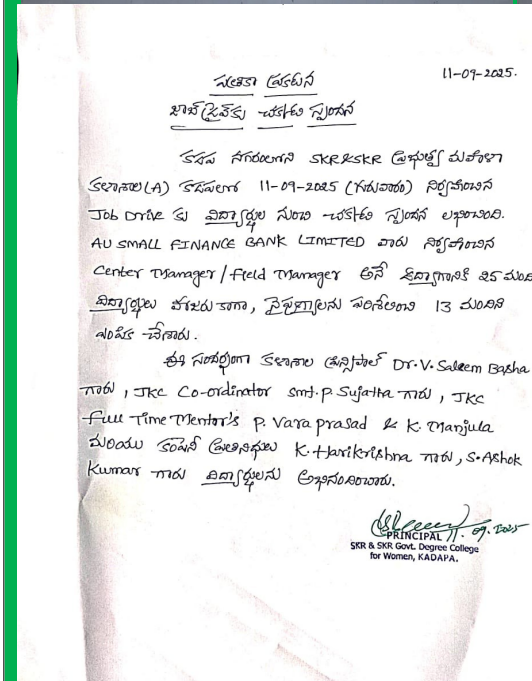 11-09-2025.
పత్రికా ప్రకటన
జాబ్ డ్రైవ్‌కు చక్కటి స్పందన
కడప నగరంలోని SKR & SKR ప్రభుత్వ మహిళా
కళాశాల (A) కడపలో 11-09-2025 (గురువారం) నిర్వహించిన
Job Drive కు విద్యార్థుల నుంచి చక్కటి స్పందన లభించింది.
AU SMALL FINANCE BANK LIMITED వారు నిర్వహించిన
Center Manager/Field Manager అనే ఉద్యోగానికి 25 మంది
విద్యార్థులు హాజరు కాగా, నైపుణ్యాలను పరిశీలించి 13 మందిని
ఎంపిక చేశారు.
ఈ సందర్భంగా కళాశాల ప్రిన్సిపాల్ Dr.V.Saleem Basha
గారు, JKC Co-ordinator smt.P.Sujatha గారు, JKC
Full Time Mentor's P. Vara prasad & K. Manjula
మరియు కంపెనీ ప్రతినిధులు K.Harikrishna గారు, S.Ashok
Kumar గారు విద్యార్థులను అభినందించారు.
11.09.2025
PRINCIPAL
SKR & SKR Govt. Degree College
for Women, KADAPA.